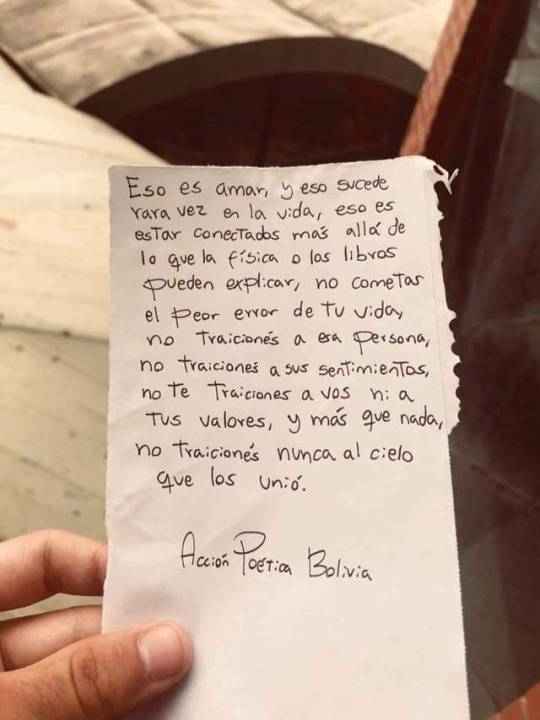 Eso es amar, y eso sucede
rara vez en la vida, eso es
estar conectados más allá de
lo que la física o los libros
pueden explicar, no cometas
el peor error de tu vida,
no traiciones a esa persona,
no traiciones a sus sentimientos,
no te traiciones a vos ni a
tus valores, y más que nada,
no traicionés nunca al cielo
que los unió.
Acción Poética Bolivia